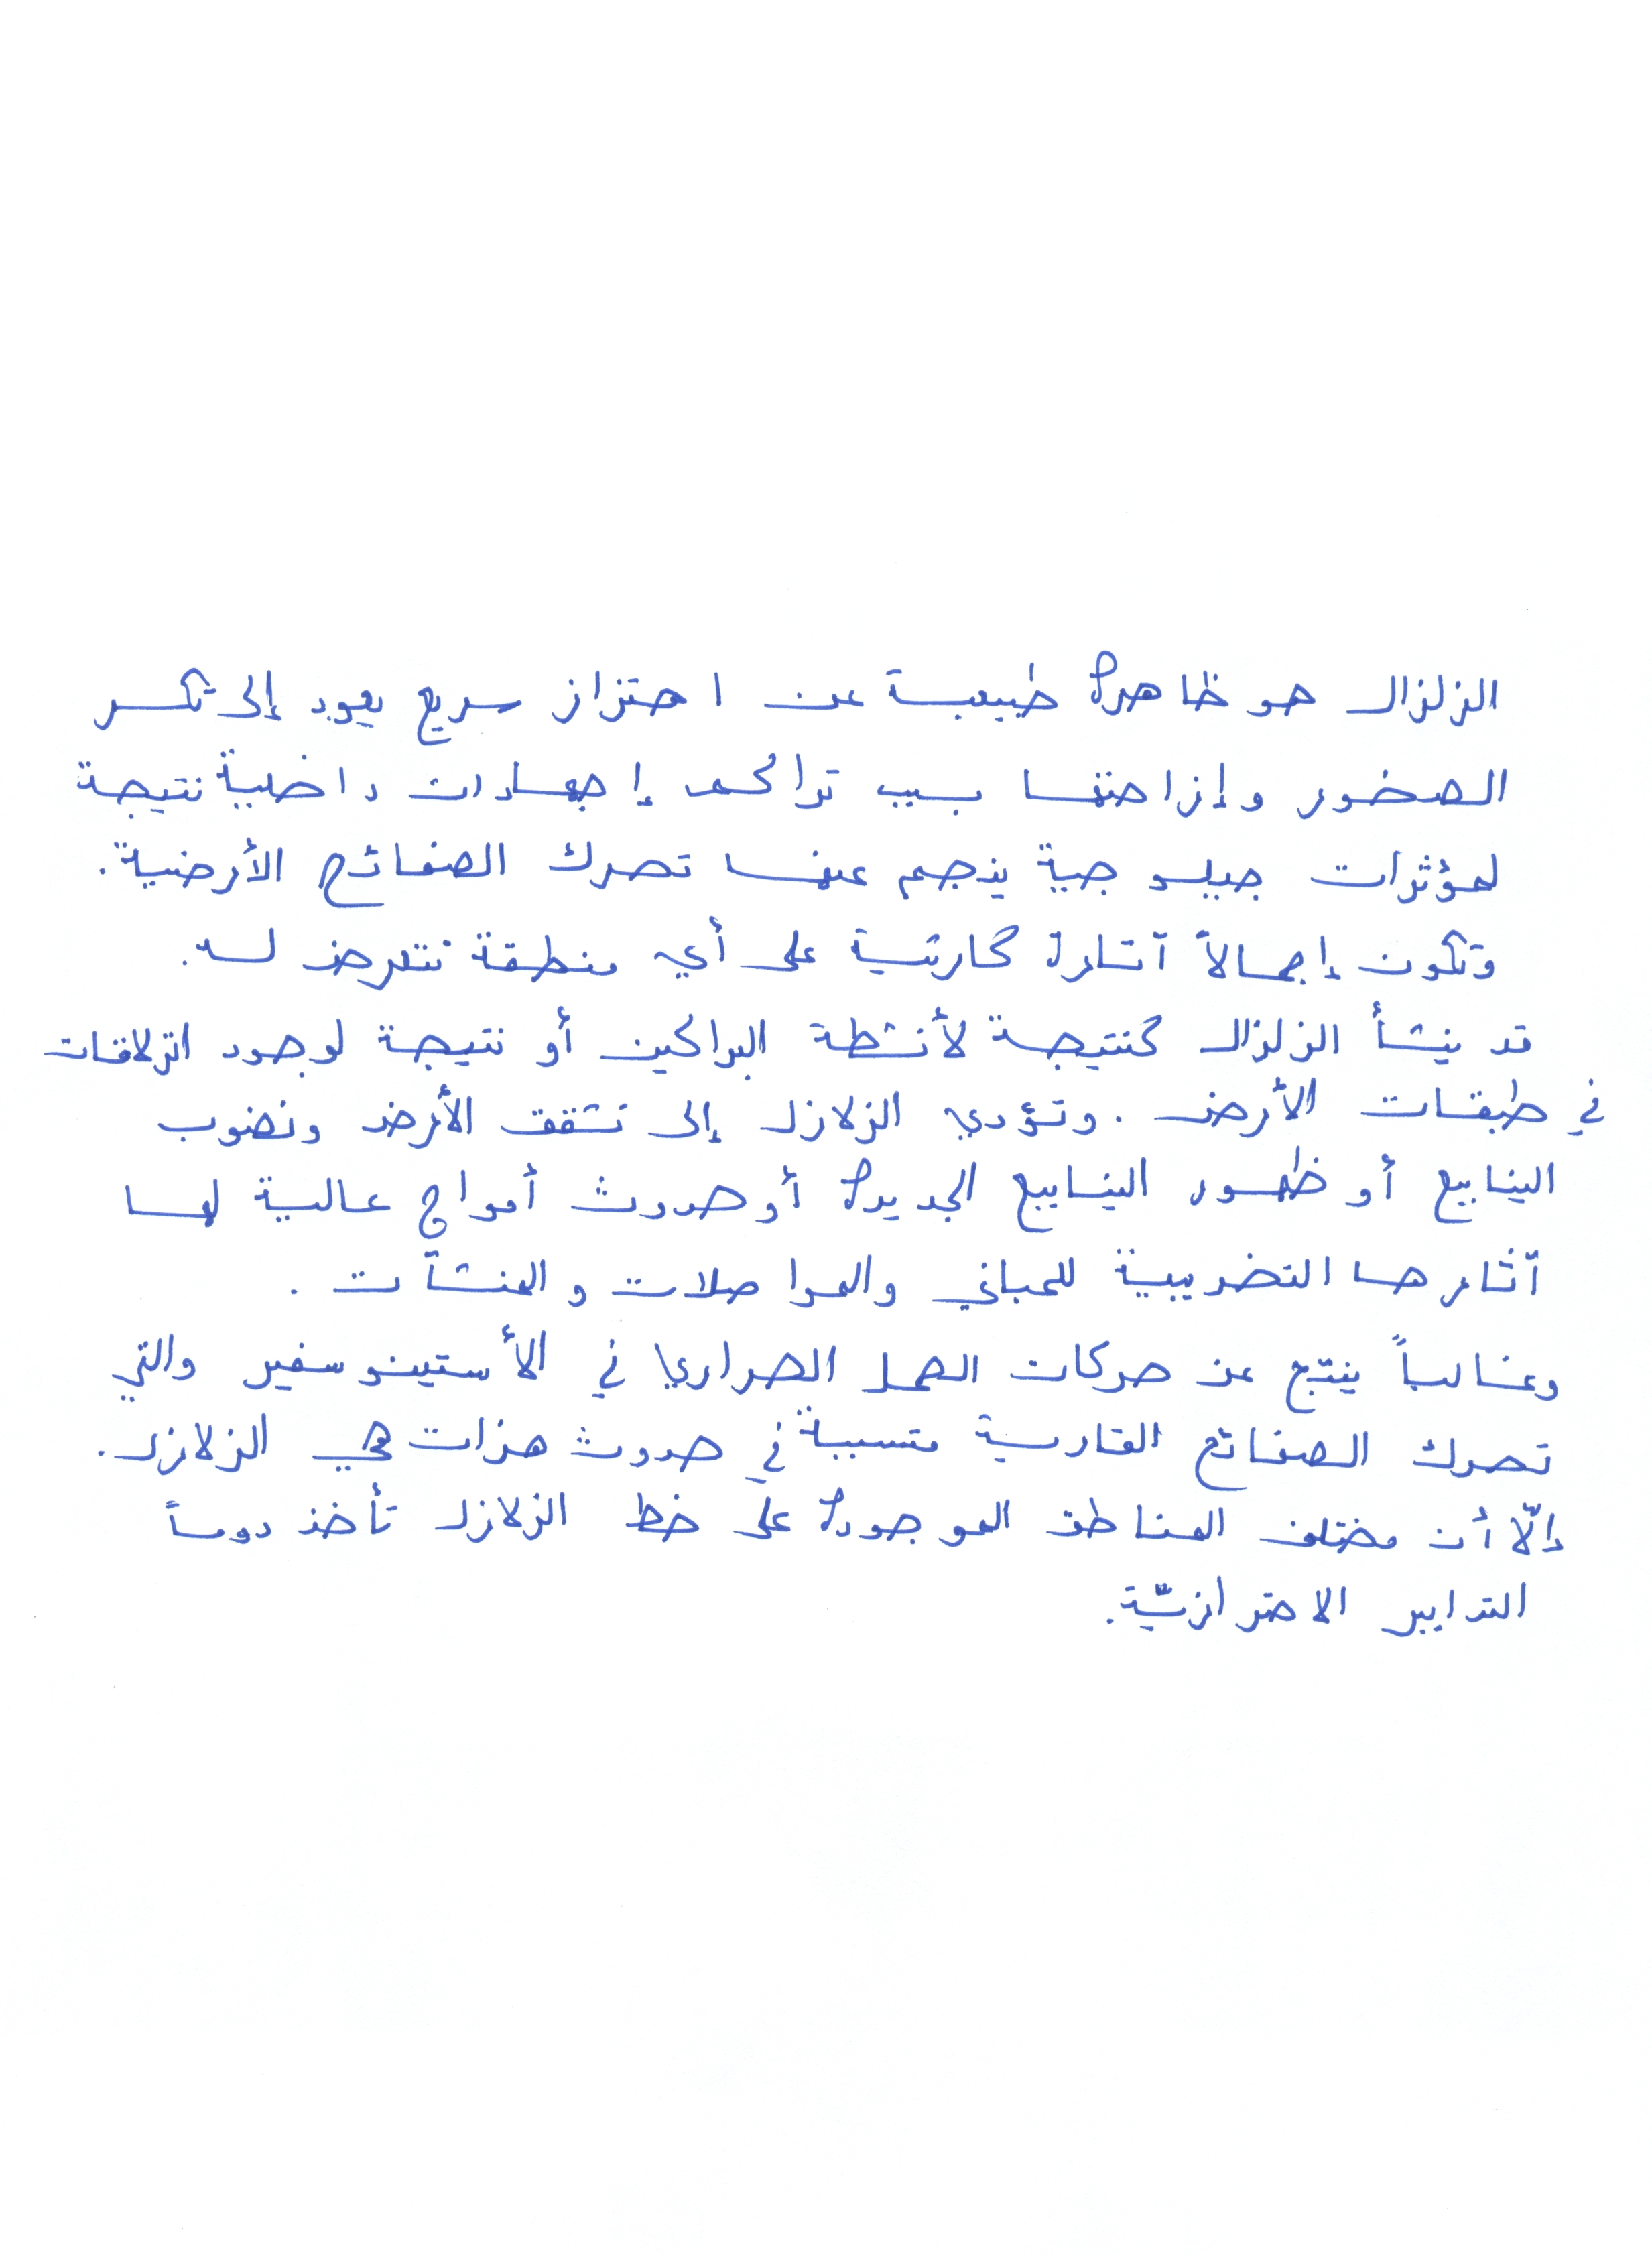 الزلزال هو ظاهرة طبيعية عن اهتزاز سريع يعود إلى تكسر
الصخور وإزاحتها بسبب تراكم إجهادات داخلية نتيجة
لمؤثرات جيولوجية ينجم عنها تحرك الصفائح الأرضية.
وتكون إجمالاً آثاره كارثية على أي منطقة تتعرض له.
قد ينشأ الزلزال كنتيجة لأنشطة البراكين أو نتيجة لوجود انزلاقات
في طبقات الأرض. وتؤدي الزلازل إلى تشقق الأرض ونضوب
الينابيع أو ظهور الينابيع الجديدة أو حدوث أمواج عالية لها
آثارها التخريبية للمباني والمواصلات والمنشآت.
وغالباً ينتج عن حركات الحمل الحراري في الأستينوسفير والتي
تحرك الصفائح القارية متسببة في حدوث هزات هي الزلازل.
إلّا أن مختلف المناطق الموجودة على خط الزلازل تأخذ دوماً
التدابير الاحترازيّة.